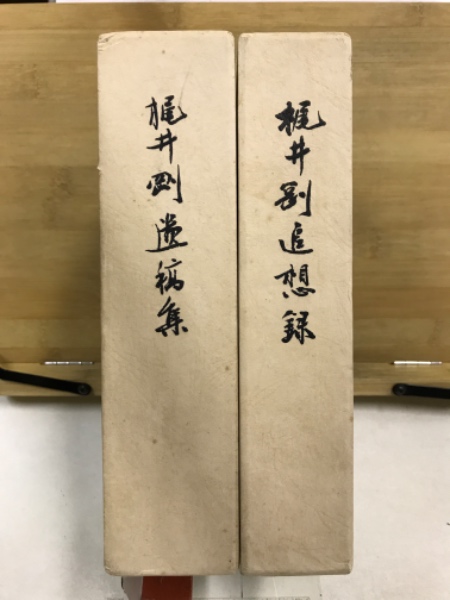 梶井剛追想録
梶井剛遺稿集